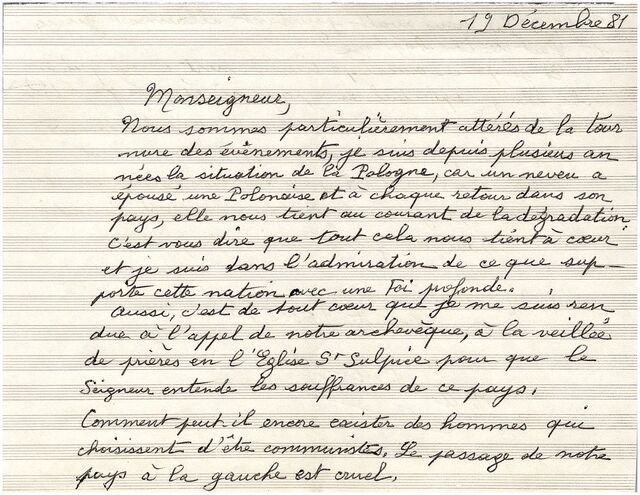 19 Décembre 81
Monseigneur,
Nous sommes particulièrement attérés de la tour
nure des évènements, je suis depuis plusieurs an
nées la situation de la Pologne, car un neveu a
épousé une Polonaise et à chaque retour dans son
pays, elle nous tient au courant de la dégradation
c'est vous dire que tout cela nous tient à cœur
et je suis dans l'admiration de ce que sup-
porte cette nation avec une foi profonde.
Aussi, c'est de tout cœur que je me suis ren
due à l'appel de notre archevêque, à la veillée
de prières en l'Eglise St Sulpice pour que le
Seigneur entende les souffrances de ce pays.
Comment peut-il encore exister des hommes qui
choisissent d'être communistes. Le passage de notre
pays à la gauche est cruel.